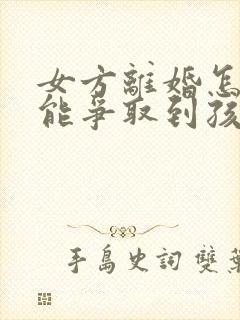 女方離婚怎
能爭取到孩
手島史詞 雙葉